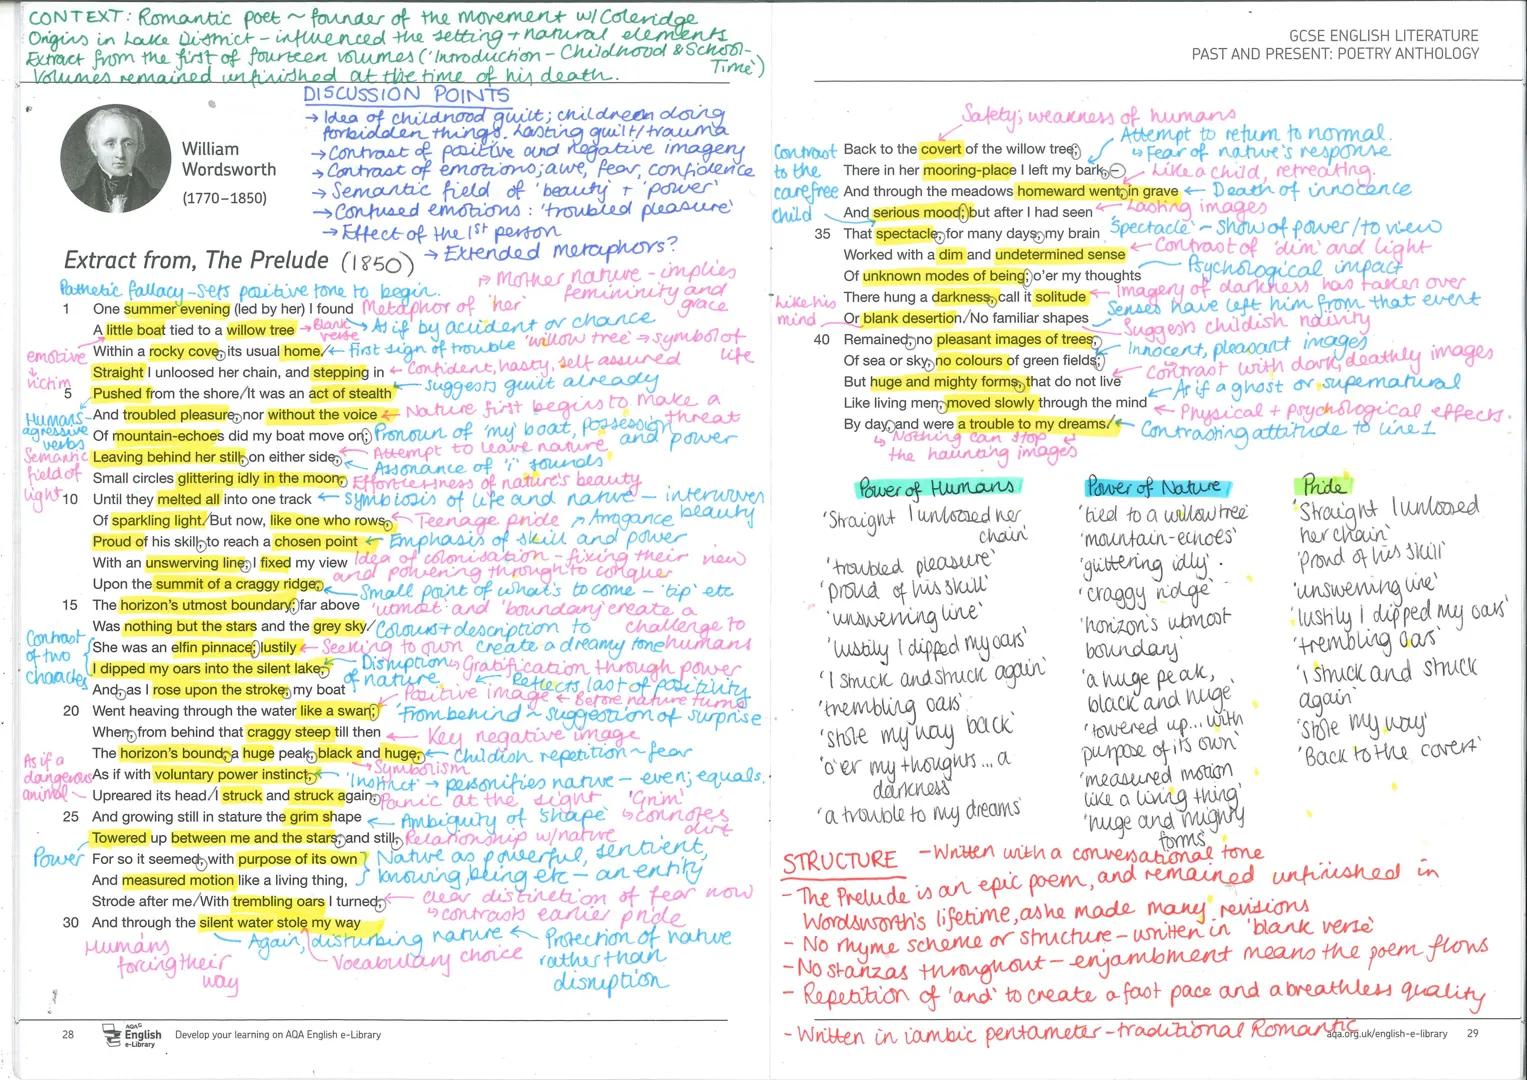 CONTEXT: Romantic poet ~ founder of the movement w/ Coleridge
Origins in Lake District - influenced the setting + natural elements
Extract from the first of fourteen volumes ('Introduction - Childhood & School-Time')
Volumes remained unfinished at the time of his death.
DISCUSSION POINTS
→ Idea of childhood guilt; children doing
forbidden things. Lasting guilt/trauma
→ Contrast of positive and negative imagery
→ Contrast of emotions; awe, fear, confidence
→ Semantic field of 'beauty' + 'power'
→ Confused emotions: 'troubled pleasure'
→ Effect of the 1st person
→ Extended metaphors?
William
Wordsworth
(1770–1850)
Extract from, The Prelude (1850)
→ Mother nature - implies
femininity and
grace
Pathetic fallacy - sets positive tone to begin.
1 One summer evening (led by her) I found Metaphor of 'her'
A little boat tied to a willow tree → Blank verse → As if by accident or chance
'willow tree' → symbol of life
Within a rocky cove, its usual home,/ ← First sign of trouble
emotive
↓
victim
Straight I unloosed her chain, and stepping in ← Confident, hasty, self assured
← suggests guilt already
5 Pushed from the shore/It was an act of stealth
Humans - agressive verbs
And troubled pleasure, nor without the voice ← Nature first begins to make a threat
Of mountain-echoes did my boat move on; Pronoun of 'my' boat, possession and power
Semantic field of light
Leaving behind her still, on either side, ← Attempt to leave nature
← Assonance of 'i' sounds
Small circles glittering idly in the moon, Effortlessness of nature's beauty
10 Until they melted all into one track ← symbiosis of life and nature - interwoven beauty
Of sparkling light/But now, like one who rows, ← Teenage pride ↗ Arrogance
Proud of his skill, to reach a chosen point ← Emphasis of skill and power
With an unswerving line, I fixed my view Idea of colonisation - fixing their view
and powering through to conquer
Upon the summit of a craggy ridge, ← Small point of what's to come - 'tip' etc
15 The horizon's utmost boundary; far above 'utmost' and 'boundary' create a
challenge to humans
Was nothing but the stars and the grey sky/ Colours + description to
create a dreamy tone
Contrast of two characters
She was an elfin pinnace; lustily ← Seeking to own
I dipped my oars into the silent lake, ← Disruption of nature ↳ Gratification through power
And, as I rose upon the stroke, my boat ← Reflects last of positivity
← Positive image ← Before nature turns
20 Went heaving through the water like a swan; 'From behind' ~ suggestion of surprise
When, from behind that craggy steep till then ← Key negative image
The horizon's bound, a huge peak, black and huge, ← Childish repetition ~ fear
↳ Symbolism
As if a dangerous animal
As if with voluntary power instinct, ← 'Instinct' → personifies nature - even; equals.
Upreared its head/I struck and struck again, Panic at the sight
'Grim' ↳ connotes dirt
25 And growing still in stature the grim shape ← Ambiguity of shape
Towered up between me and the stars, and still, Relationship w/nature
Power
For so it seemed, with purpose of its own Nature as powerful, sentient,
And measured motion like a living thing, knowing, being etc - an entity
Strode after me/With trembling oars I turned, ← clear distinction of fear now
↳ contrasts earlier pride
30 And through the silent water stole my way
Humans
forcing their
way
Again, disturbing nature ← Protection of nature
rather than
disruption
Vocabulary choice
28
AQA
English
e-Library
Develop your learning on AQA English e-Library
GCSE ENGLISH LITERATURE
PAST AND PRESENT: POETRY ANTHOLOGY
Safety; weakness of humans
Attempt to return to normal.
↳ Fear of nature's response
Contrast to the carefree child
Back to the covert of the willow tree;
There in her mooring-place I left my bark,– Like a child, retreating.
And through the meadows homeward went, in grave ← Death of innocence
And serious mood; but after I had seen ← Lasting images
35 That spectacle, for many days, my brain 'Spectacle' ~ Show of power/to view
Worked with a dim and undetermined sense ← Contrast of 'dim' and light
Of unknown modes of being; o'er my thoughts Psychological impact
There hung a darkness, call it solitude ← Imagery of darkness has taken over
Like his mind
Or blank desertion/No familiar shapes Senses have left him from that event
Suggest childish naivity
40 Remained, no pleasant images of trees,
Innocent, pleasant images
Of sea or sky, no colours of green fields; Contrast with dark, deathly images
But huge and mighty forms, that do not live ← As if a ghost or supernatural
Like living men, moved slowly through the mind ← Physical + psychological effects.
By day, and were a trouble to my dreams/ ← Contrasting attitude to line 1
↳ Nothing can stop
the haunting images
Power of Humans
'Straight I unloosed her
chain'
'troubled pleasure'
'proud of his skill'
'unswerving line'
'lustily I dipped my oars'
'I struck and struck again'
'trembling oars'
'stole my way back'
'o'er my thoughts... a
darkness'
'a trouble to my dreams'
Power of Nature
'tied to a willow tree'
'mountain-echoes'
'glittering idly'
'craggy ridge'
'horizon's utmost
boundary'
'a huge peak,
black and huge'
'towered up... with
purpose of its own'
'measured motion
like a living thing'
'huge and mighty
forms'
Pride
'Straight I unloosed
her chain'
'Proud of his skill'
'unswerving line'
'lustily I dipped my oars'
'trembling oars'
'I struck and struck
again'
'Stole my way'
'Back to the covert'
STRUCTURE - Written with a conversational tone
- The Prelude is an epic poem, and remained unfinished in
Wordsworth's lifetime, as he made many revisions
- No rhyme scheme or structure - written in 'blank verse'
- No stanzas throughout - enjambment means the poem flows
- Repetition of 'and' to create a fast pace and a breathless quality
- Written in iambic pentameter - traditional Romantic
aqa.org.uk/english-e-library 29